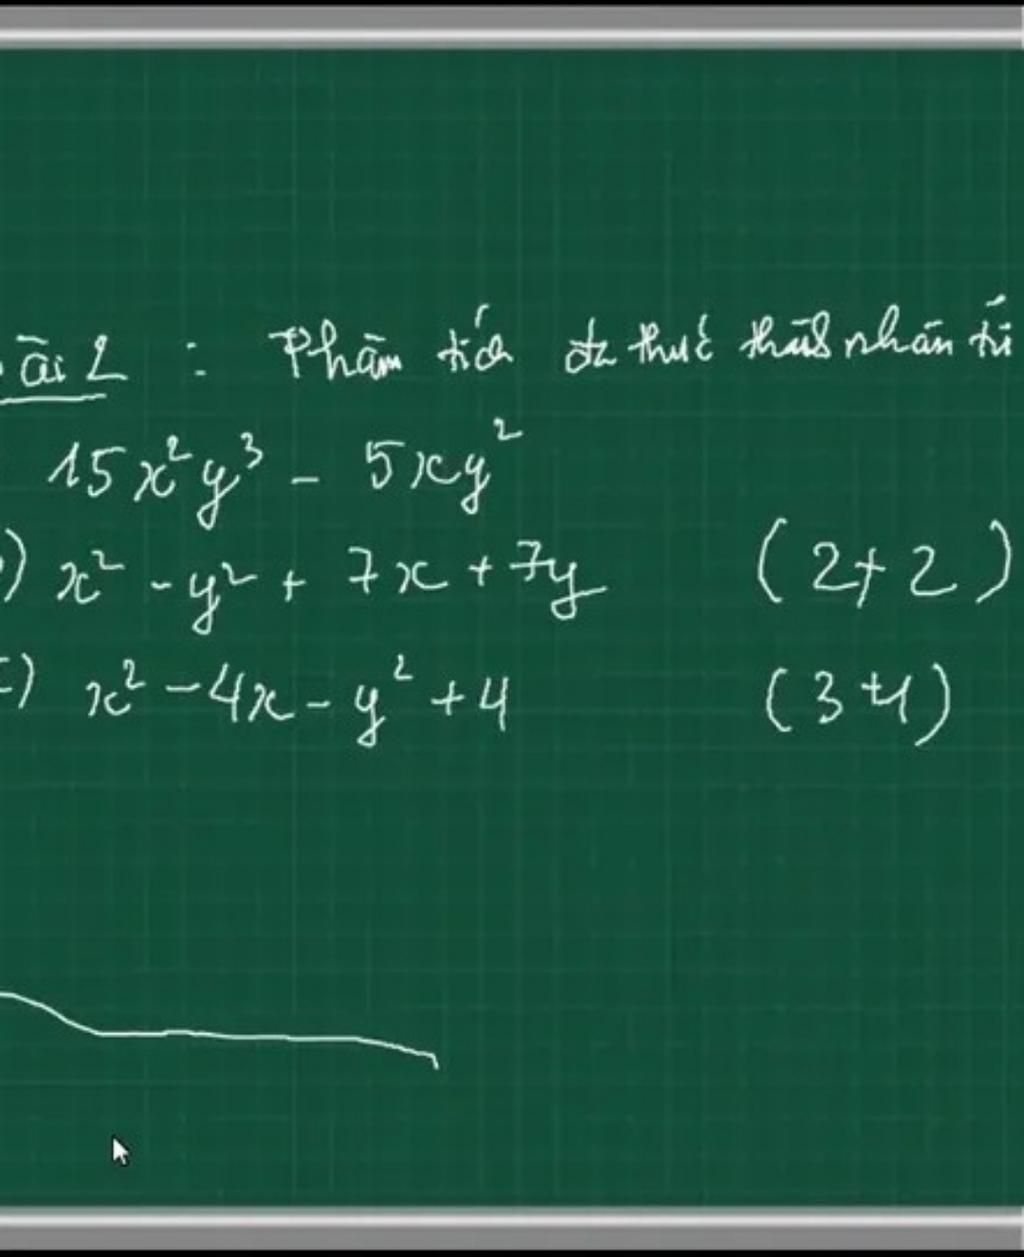 ài 2 : Phân tích đa thức thành nhân tử
15x²y³ - 5xy²
) x² - y² + 7x + 7y (2+2)
c) x² - 4x - y² + 4 (3+1)